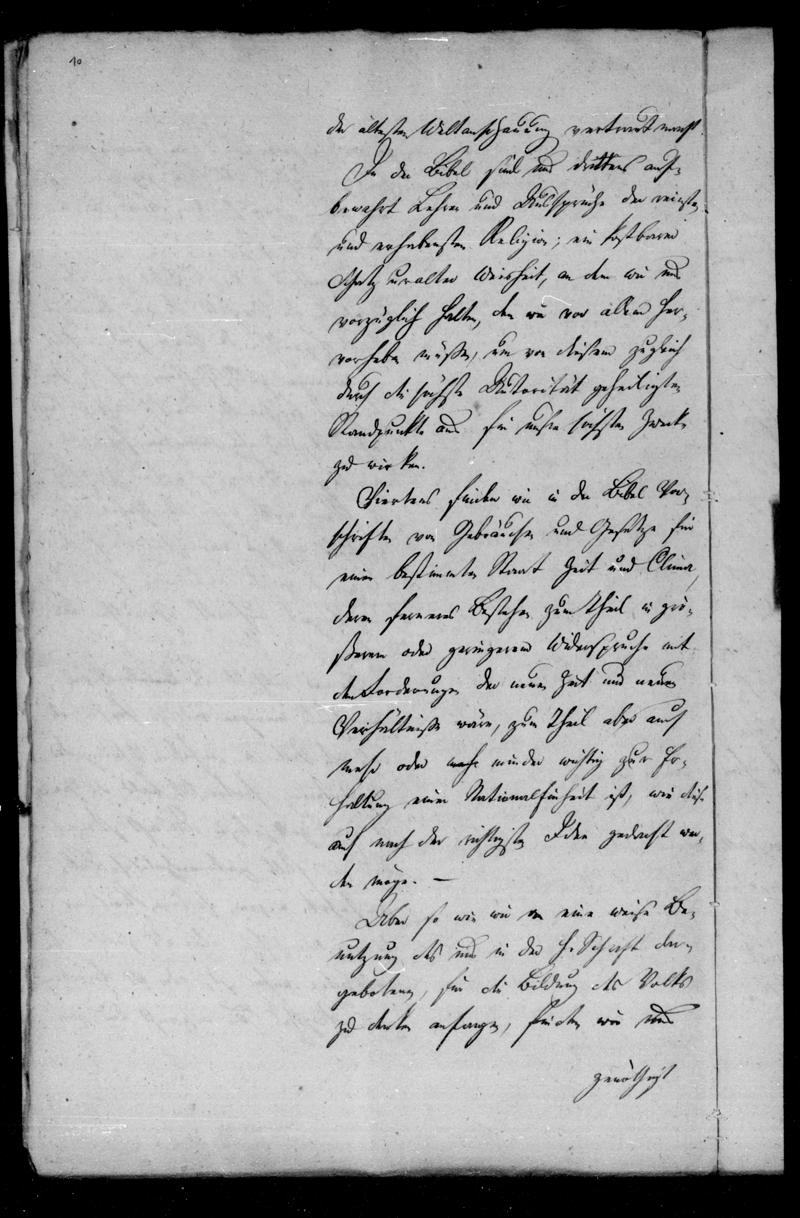 10
der ältesten Weltanschauung vertraut macht.
In der Bibel sind uns drittens auf-
bewahrt Lehren und Aussprüche der reinsten
und erhabensten Religion; ein kostbarer
Schatz uralter Weisheit, an den wir uns
vorzüglich halten, den wir vor allem her-
vorheben müssen, um von diesem zugleich
durch die höchste Autorität geheiligten
Standpunkte aus für unsre höchsten Zwecke
zu wirken.
Viertens finden wir in der Bibel Vor-
schriften von Gebräuchen und Gesetze für
einen bestimmten Staat Zeit und Clima,
deren ferneres Bestehen zum Theil in grö-
ßerem oder geringerem Widerspruche mit
den Forderungen der neuen Zeit und neuen
Verhältnisse wäre, zum Theil aber auch
mehr oder minder wichtig zur Er-
haltung einer Nationaleinheit ist, wie diese
auch nach der richtigsten Idee gedacht wer-
den möge. —
Aber so wie wir an eine weise Be-
nutzung des uns in der h. Schrift dar-
gebotenen, für die Bildung des Volks
zu denken anfangen, finden wir uns
genöthigt